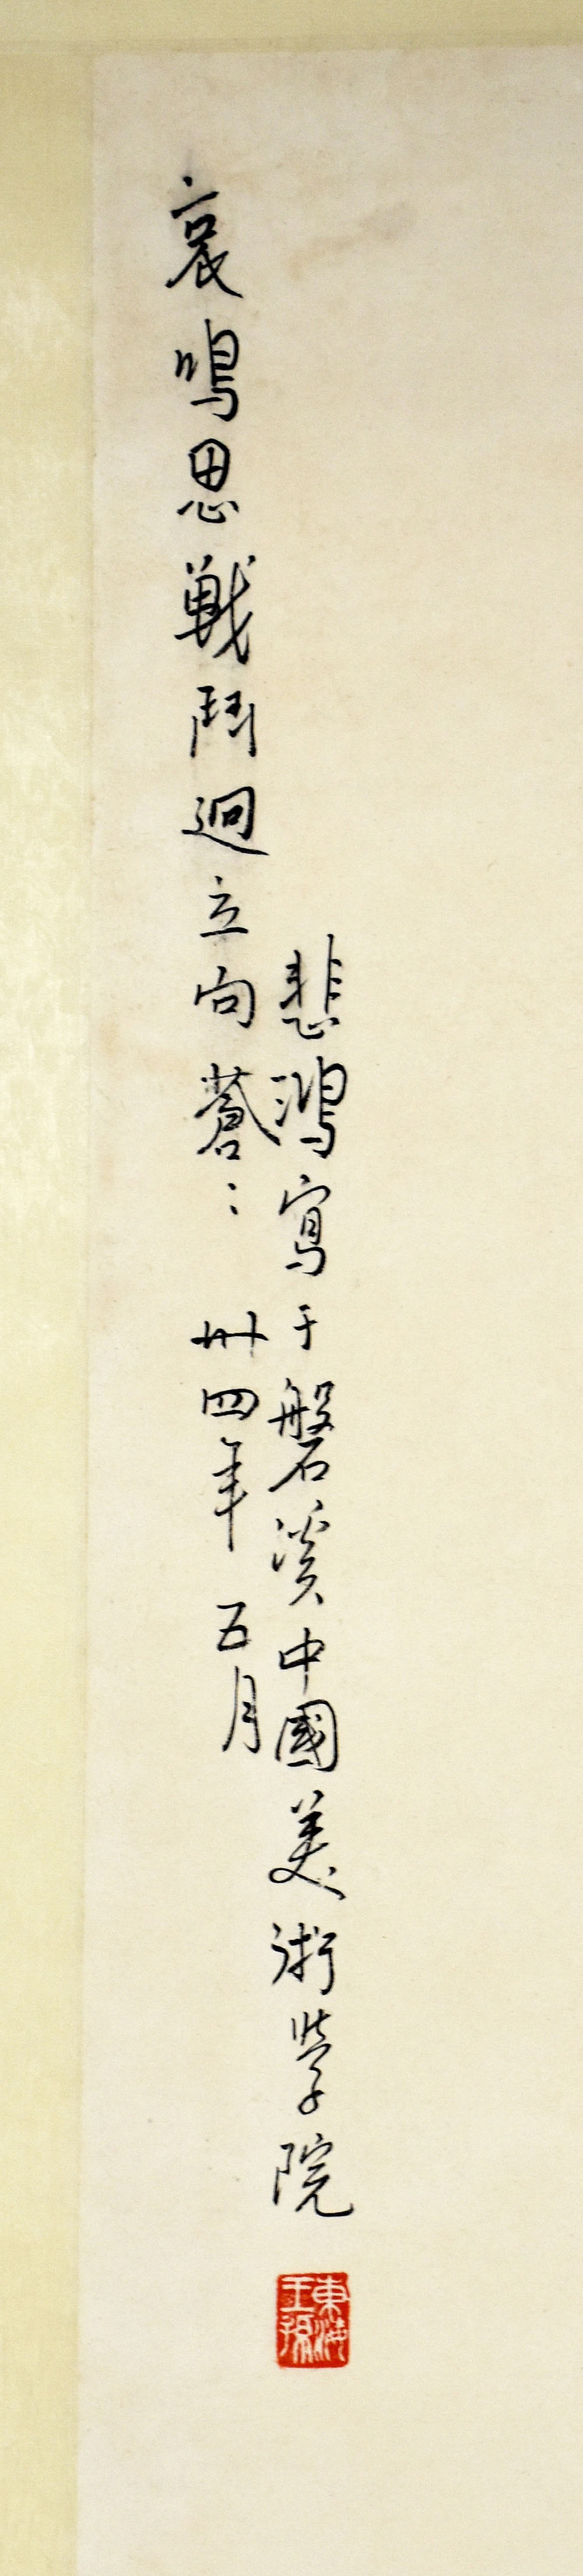 哀鳴思戰鬥迥立向蒼〻 卅四年五月
悲鴻寫于磐溪中國美術學院
東海王孫